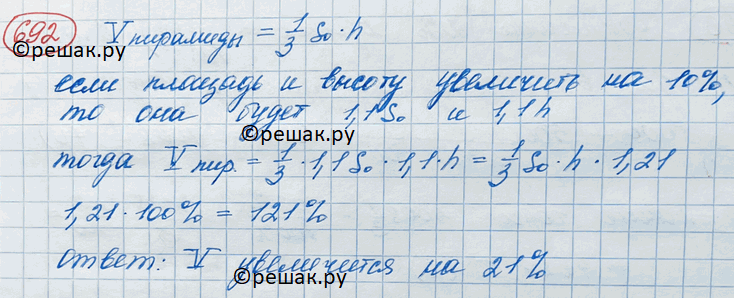 692 V пирамиды = 1/3 S₀ · h
©решак.ру
если площадь и высоту увеличить на 10%,
то она будет 1,1 S₀ и 1,1 h
©решак.ру
тогда V пир. = 1/3 · 1,1 S₀ · 1,1 · h = 1/3 S₀ · h · 1,21
1,21 · 100% = 121%
ответ: V увеличится на 21%
©решак.ру